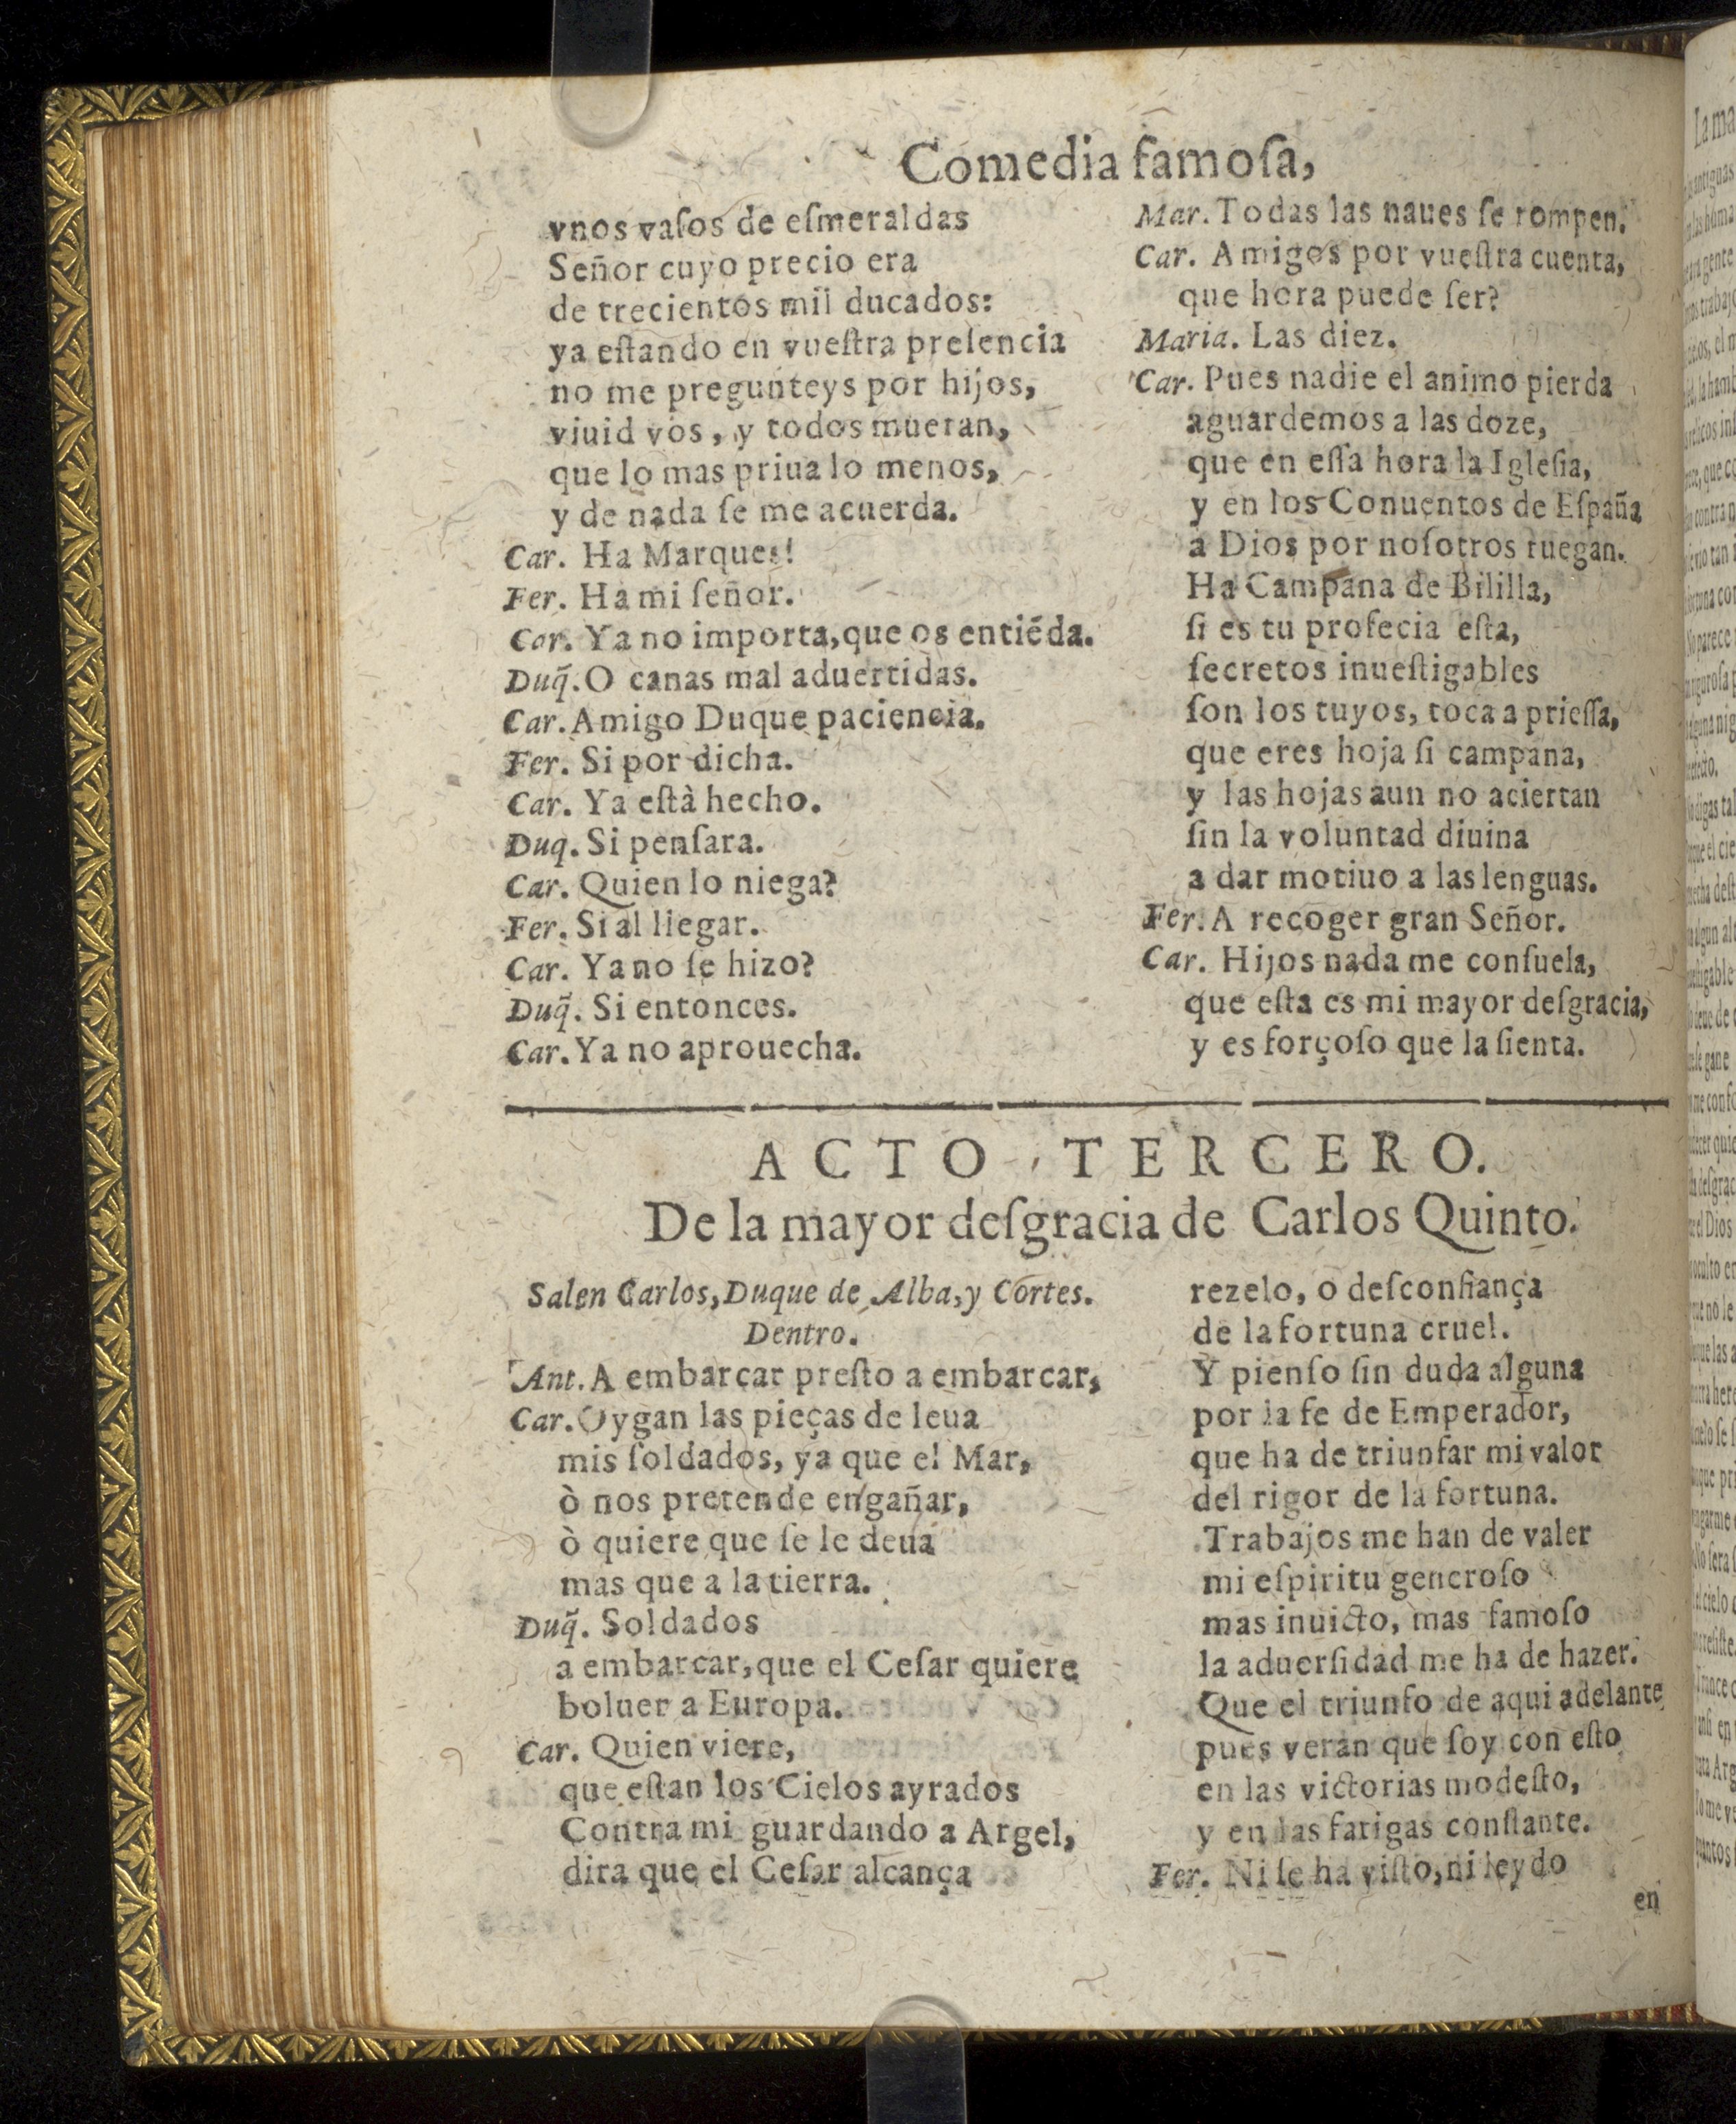 Comedia famoſa,
vnos vaſos de eſmeraldas
Señor cuyo precio era
de trecientos mil ducados:
ya eſtando en vueſtra preſencia
no me pregunteys por hijos,
viuid vos, y todos mueran,
que lo mas priua lo menos,
y de nada ſe me acuerda.
Car. Ha Marques!
Fer. Ha mi ſeñor.
Car. Ya no importa, que os entiẽda.
Duq̃. O canas mal aduertidas.
Car. Amigo Duque paciencia.
Fer. Si por dicha.
Car. Ya eſtà hecho.
Duq. Si penſara.
Car. Quien lo niega?
Fer. Si al llegar.
Car. Ya no ſe hizo?
Duq̃. Si entonces.
Car. Ya no aprouecha.
Mar. Todas las naues ſe rompen.
Car. Amigos por vueſtra cuenta,
que hora puede ſer?
Maria. Las diez.
Car. Pues nadie el animo pierda
aguardemos a las doze,
que en eſſa hora la Igleſia,
y en los Conuentos de Eſpaña
a Dios por noſotros ruegan.
Ha Campana de Bililla,
ſi es tu profecia eſta,
ſecretos inueſtigables
ſon los tuyos, toca a prieſſa,
que eres hoja ſi campana,
y las hojas aun no aciertan
ſin la voluntad diuina
a dar motiuo a las lenguas.
Fer. A recoger gran Señor.
Car. Hijos nada me conſuela,
que eſta es mi mayor deſgracia,
y es forçoſo que la ſienta.
ACTO TERCERO.
De la mayor deſgracia de Carlos Quinto.
Salen Carlos, Duque de Alba, y Cortes.
Dentro.
Ant. A embarcar preſto a embarcar,
Car. Oygan las pieças de leua
mis ſoldados, ya que el Mar,
ò nos pretende engañar,
ò quiere que ſe le deua
mas que a la tierra.
Duq̃. Soldados
a embarcar, que el Ceſar quiere
boluer a Europa.
Car. Quien viere,
que eſtan los Cielos ayrados
Contra mi guardando a Argel,
dira que el Ceſar alcança
rezelo, o deſconfiança
de la fortuna cruel.
Y pienſo ſin duda alguna
por la fe de Emperador,
que ha de triunfar mi valor
del rigor de la fortuna.
Trabajos me han de valer
mi eſpiritu generoſo
mas inuicto, mas famoſo
la aduerſidad me ha de hazer.
Que el triunfo de aqui adelante
pues veràn que ſoy con eſto
en las victorias modeſto,
y en las fatigas conſtante.
Fer. Ni ſe ha viſto, ni leydo
en